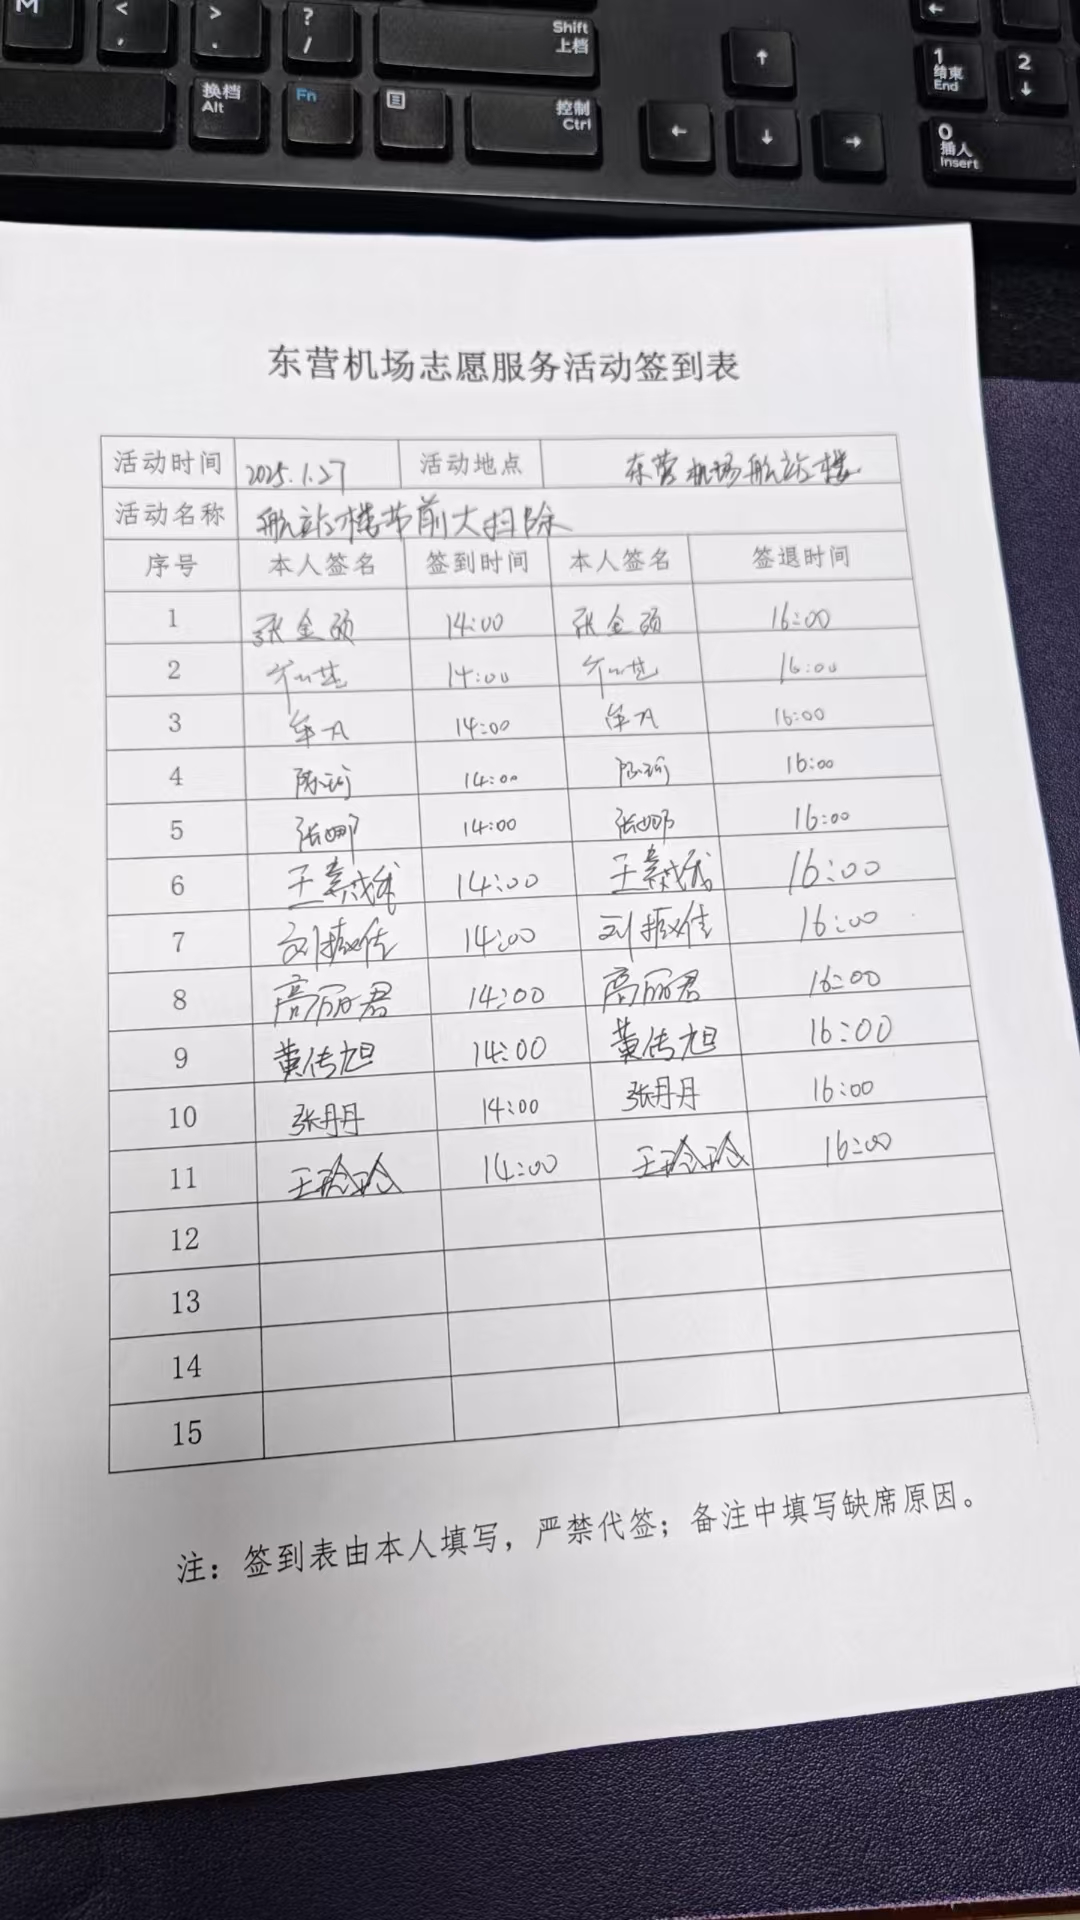 M < , > . ? / Shift 上档 ↑ ← 1 结束 End 2 ↓
换档 Alt Fn 控制 Ctrl ← ↓ → 0 插入 Insert
东营机场志愿服务活动签到表
活动时间 2025.1.27 活动地点 东营机场航站楼
活动名称 航站楼节前大扫除
序号 本人签名 签到时间 本人签名 签退时间
1 张金硕 14:00 张金硕 16:00
2 14:00 16:00
3 牟凡 14:00 牟凡 16:00
4 陈珂 14:00 陈珂 16:00
5 张娜 14:00 张娜 16:00
6 王素成 14:00 王素成 16:00
7 刘振佳 14:00 刘振佳 16:00
8 高丽君 14:00 高丽君 16:00
9 黄传旭 14:00 黄传旭 16:00
10 张丹丹 14:00 张丹丹 16:00
11 王玲玲 14:00 王玲玲 16:00
12
13
14
15
注：签到表由本人填写，严禁代签；备注中填写缺席原因。